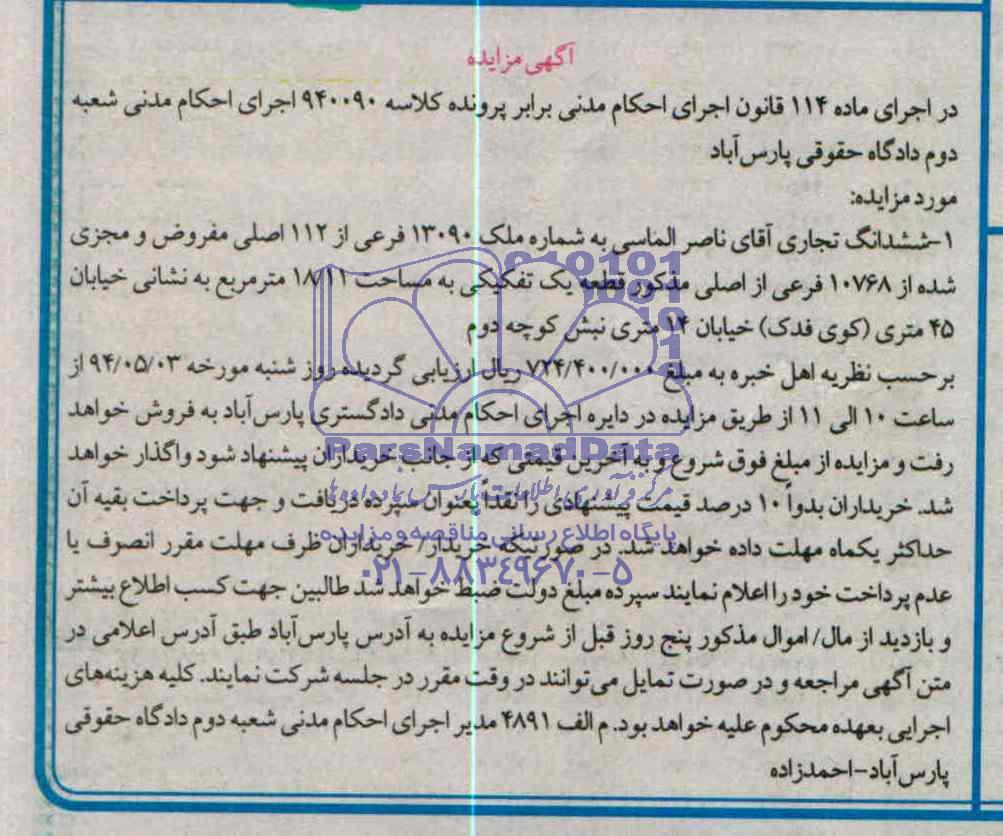 آگهی مزایده
در اجرای ماده ۱۱۴ قانون اجرای احکام مدنی برابر پرونده کلاسه ۹۴۰۰۹۰ اجرای احکام مدنی شعبه
دوم دادگاه حقوقی پارس‌آباد
مورد مزایده:
۱-ششدانگ تجاری آقای ناصر الماسی به شماره ملک ۱۳۰۹۰ فرعی از ۱۱۲ اصلی مفروض و مجزی
شده از ۱۰۷۶۸ فرعی از اصلی مذکور قطعه یک تفکیکی به مساحت ۱۸/۱۱ مترمربع به نشانی خیابان
۴۵ متری (کوی فدک) خیابان ۱۴ متری نبش کوچه دوم
برحسب نظریه اهل خبره به مبلغ ۷۲۴/۴۰۰/۰۰۰ ریال ارزیابی گردیده روز شنبه مورخه ۹۴/۰۵/۰۳ از
ساعت ۱۰ الی ۱۱ از طریق مزایده در دایره اجرای احکام مدنی دادگستری پارس‌آباد به فروش خواهد
رفت و مزایده از مبلغ فوق شروع و به آخرین قیمتی که از جانب خریداران پیشنهاد شود واگذار خواهد
شد. خریداران بدواً ۱۰ درصد قیمت پیشنهادی را نقداً بعنوان سپرده دریافت و جهت پرداخت بقیه آن
حداکثر یکماه مهلت داده خواهد شد. در صورتیکه خریدار/ خریداران ظرف مهلت مقرر انصرف یا
عدم پرداخت خود را اعلام نمایند سپرده مبلغ دولت ضبط خواهد شد طالبین جهت کسب اطلاع بیشتر
و بازدید از مال/ اموال مذکور پنج روز قبل از شروع مزایده به آدرس پارس‌آباد طبق آدرس اعلامی در
متن آگهی مراجعه و در صورت تمایل می‌توانند در وقت مقرر در جلسه شرکت نمایند. کلیه هزینه‌های
اجرایی بعهده محکوم علیه خواهد بود. م الف ۴۸۹۱ مدیر اجرای احکام مدنی شعبه دوم دادگاه حقوقی
پارس‌آباد-احمدزاده
ParsNamadData
پایگاه اطلاع رسانی مناقصه و مزایده
۰۲۱-۸۸۳۴۹۶۷۰-۵